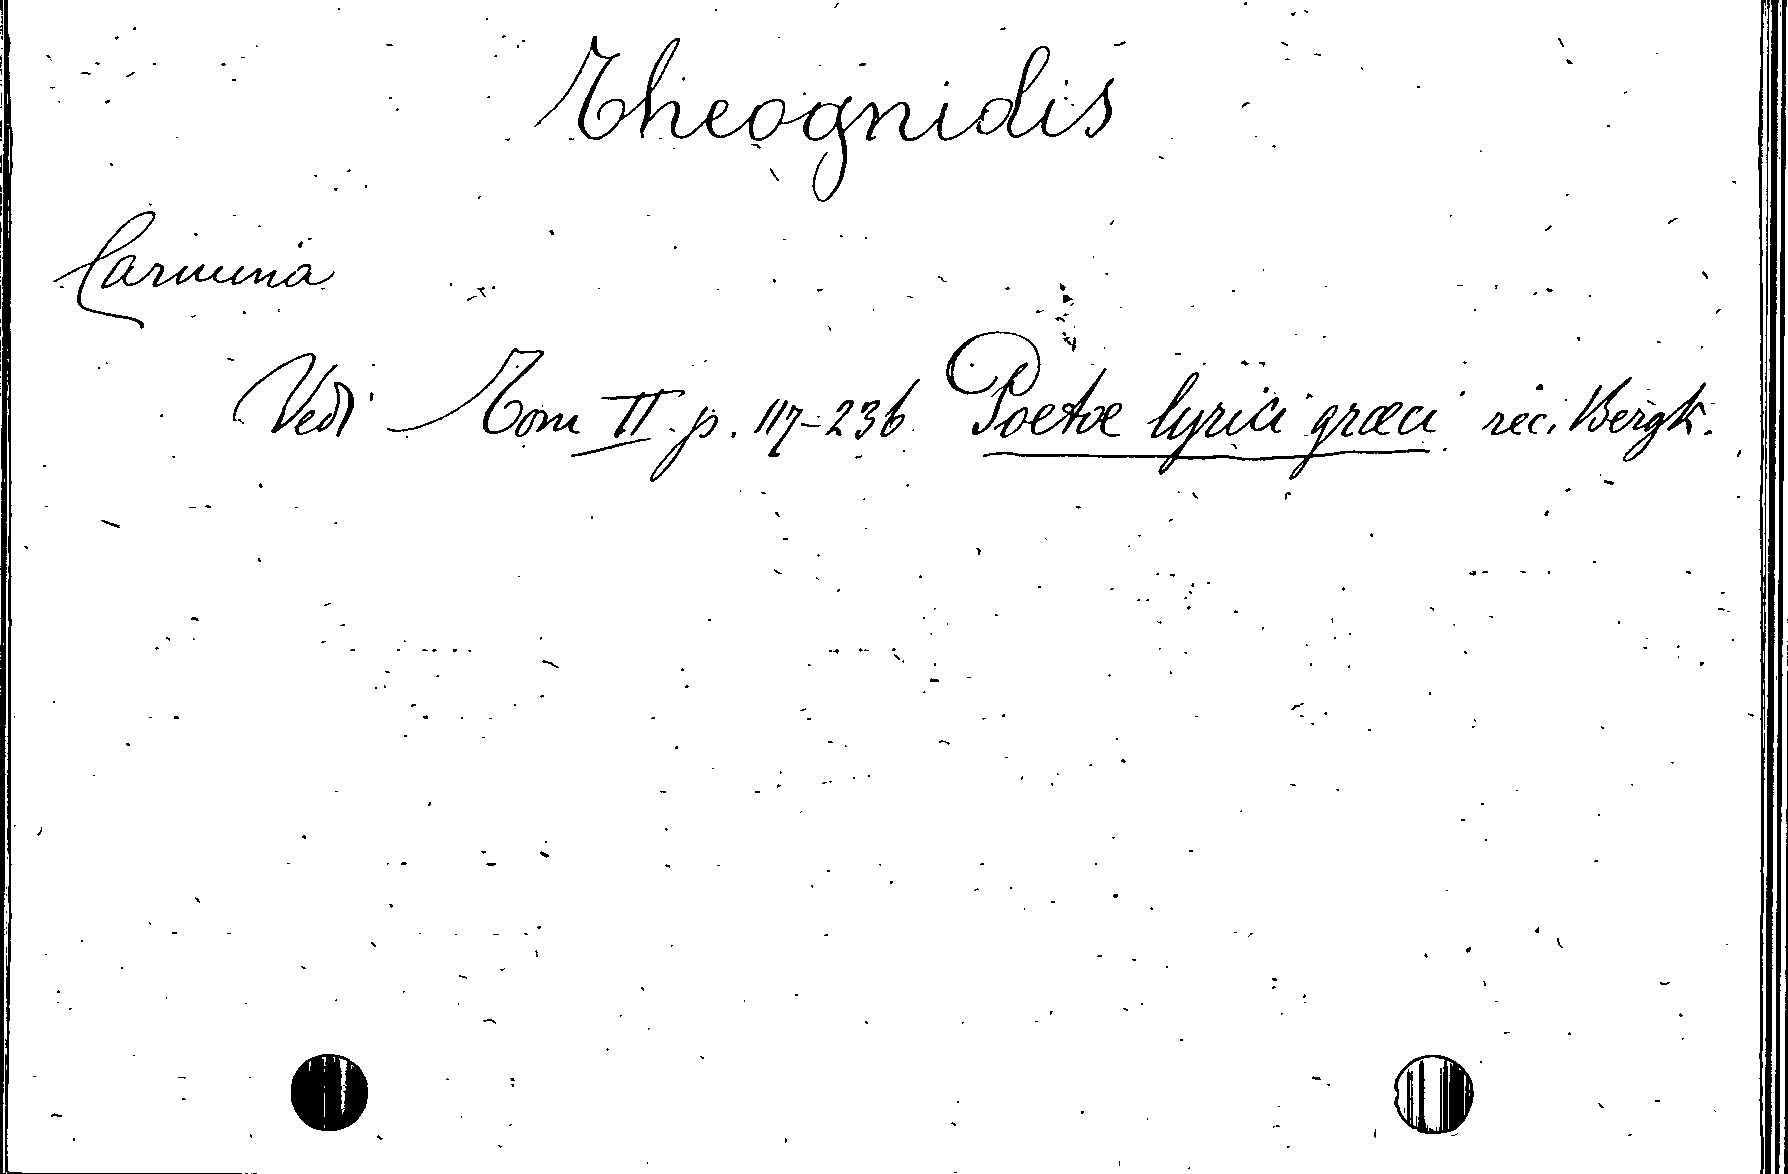 Theognidis
Carmina
Vedi Tom II. p. 117-236 Poetæ lyrici græci rec. Bergk.